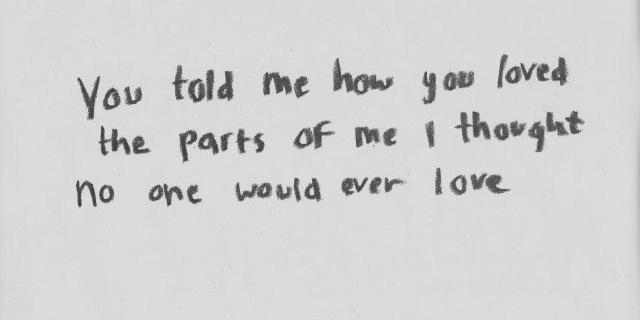 You told me how you loved
the parts of me I thought
no one would ever love